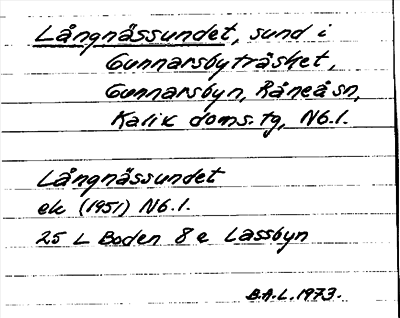 Långnässundet, sund i
Gunnarsbyträsket,
Gunnarsbyn, Råneå sn,
Kalix doms.tg, Nb.l.
Långnässundet
ek (1951) Nb.l.
25 L Boden 8 e Lassbyn
B.A.L. 1973.